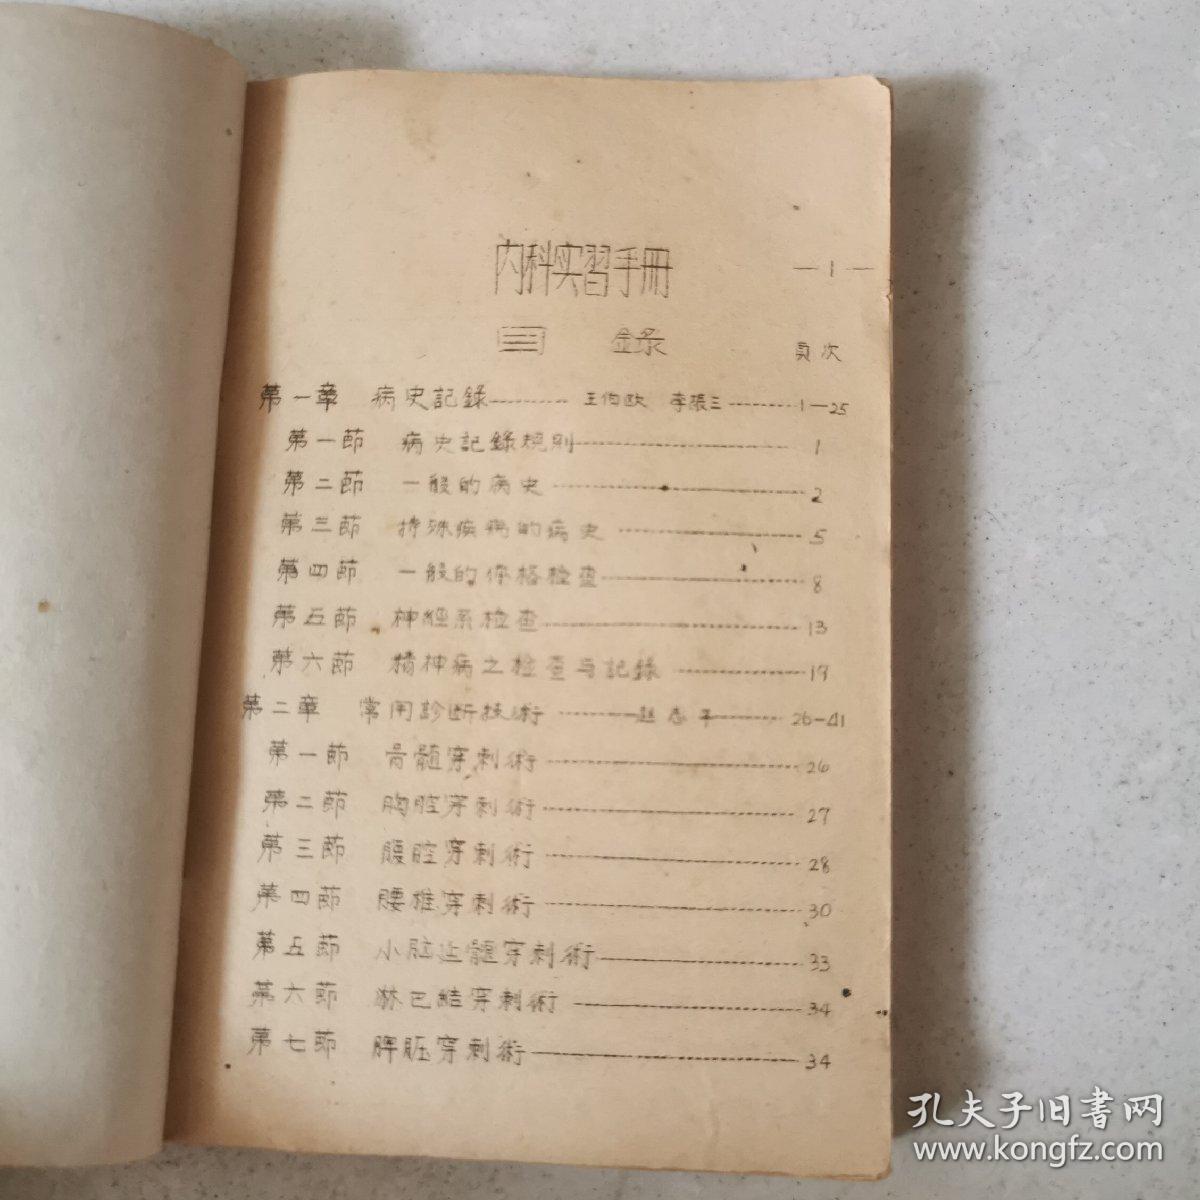 内科实習手冊
—1—
目 錄
頁次
第一章 病史記錄 王伯欧 李振三 1—25
第一節 病史記錄規則 1
第二節 一般的病史 2
第三節 特殊疾病的病史 5
第四節 一般的体格检查 8
第五節 神經系检查 13
第六節 精神病之检查与記錄 19
第二章 常用診断技術 赵志平 26-41
第一節 骨髓穿刺術 26
第二節 胸腔穿刺術 27
第三節 腹腔穿刺術 28
第四節 腰椎穿刺術 30
第五節 小脑延髓穿刺術 33
第六節 淋巴結穿刺術 34
第七節 脾脏穿刺術 34
孔夫子旧书网
www.kongfz.com